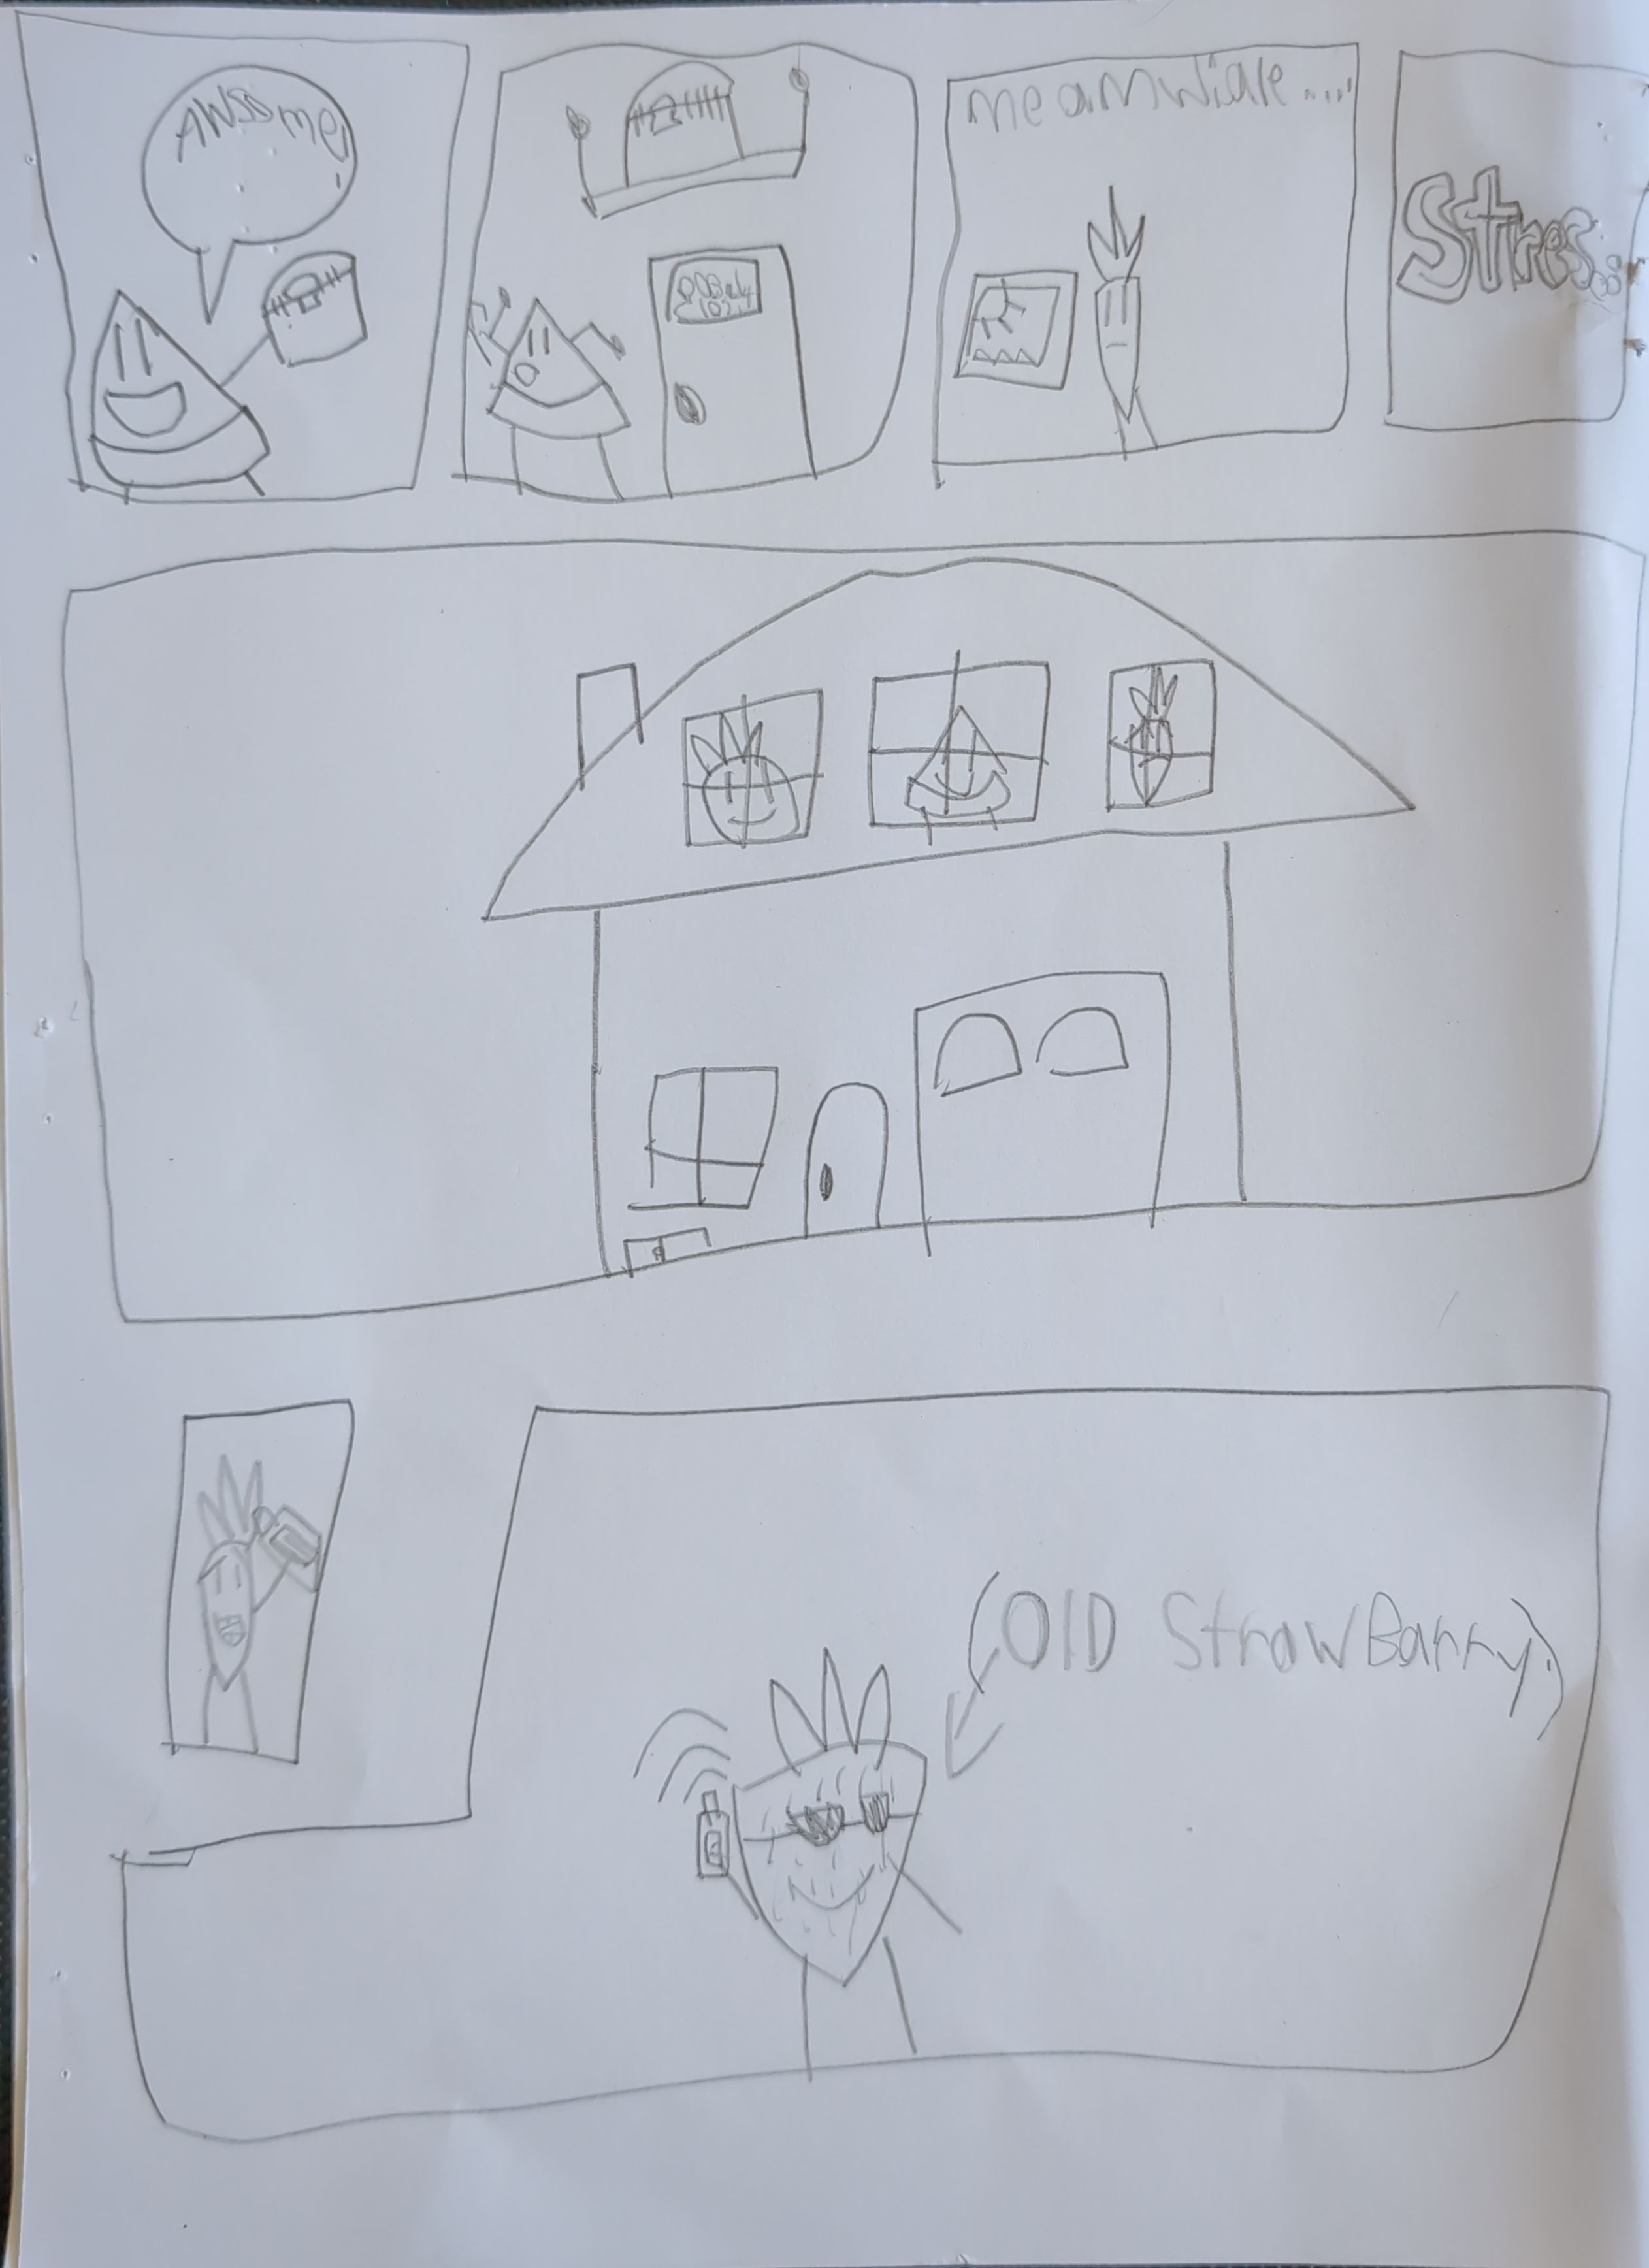 AWssome!
meanwiale.....
Stres...
(OlD StrawBarry.)